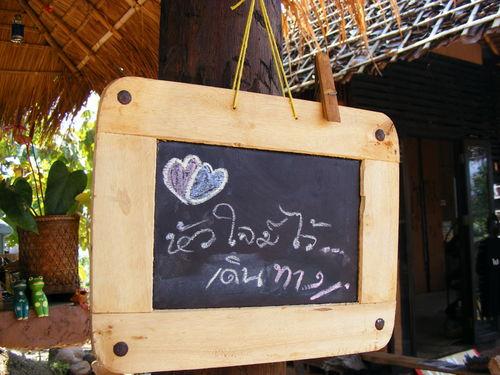 หัวใจมีไว้...
เดินทาง